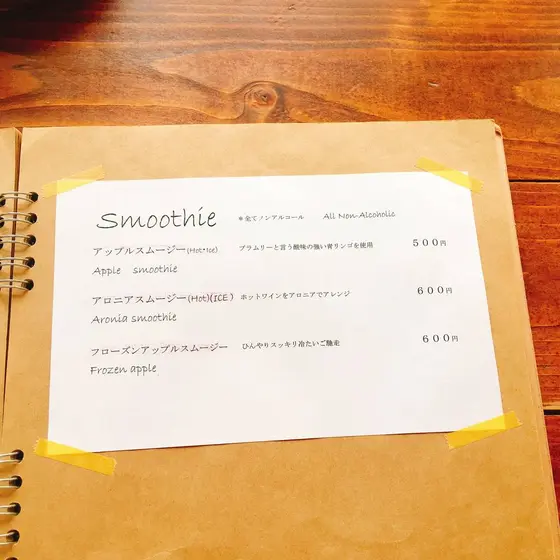 Smoothie ＊全てノンアルコール All Non-Alcoholic
アップルスムージー(Hot•Ice) ブラムリーと言う酸味の強い青リンゴを使用 500円
Apple smoothie
アロニアスムージー(Hot)(ICE) ホットワインをアロニアでアレンジ 600円
Aronia smoothie
フローズンアップルスムージー ひんやりスッキリ冷たいご馳走 600円
Frozen apple